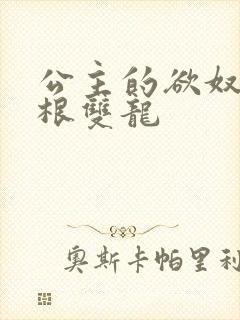 公主的欲奴
根雙龍
奧斯卡帕里利